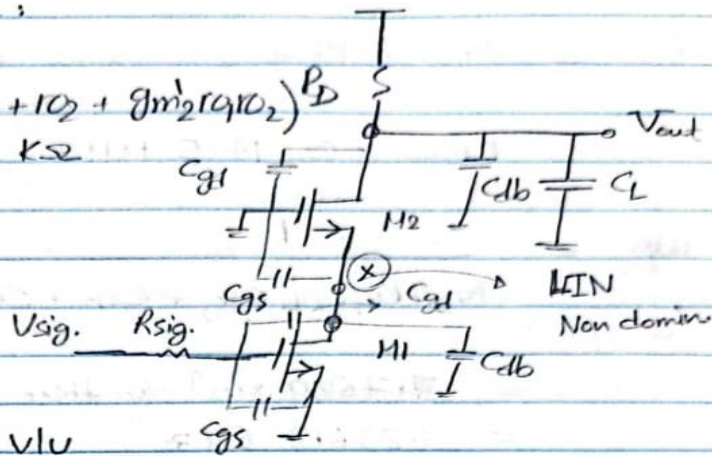 + ro2 + gm'2 ro1 ro2) RD
KΩ
Vout
Cgd
Cdb
CL
M2
X
Cgs
Cgd
Non domin.
Vsig.
Rsig.
M1
Cdb
V/V
Cgs